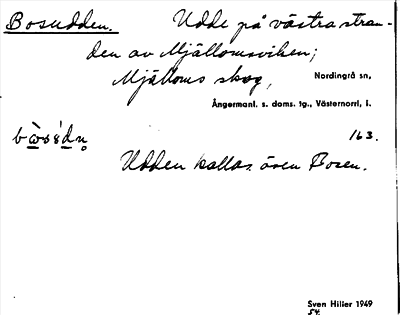 Bosudden. Udde på västra stran-
den av Mjällomsviken;
Mjälloms skog, Nordingrå sn,
Ångermanl. s. doms. tg., Västernorrl. l.
163.
Udden kallas även Bosen.
Sven Hilier 1949